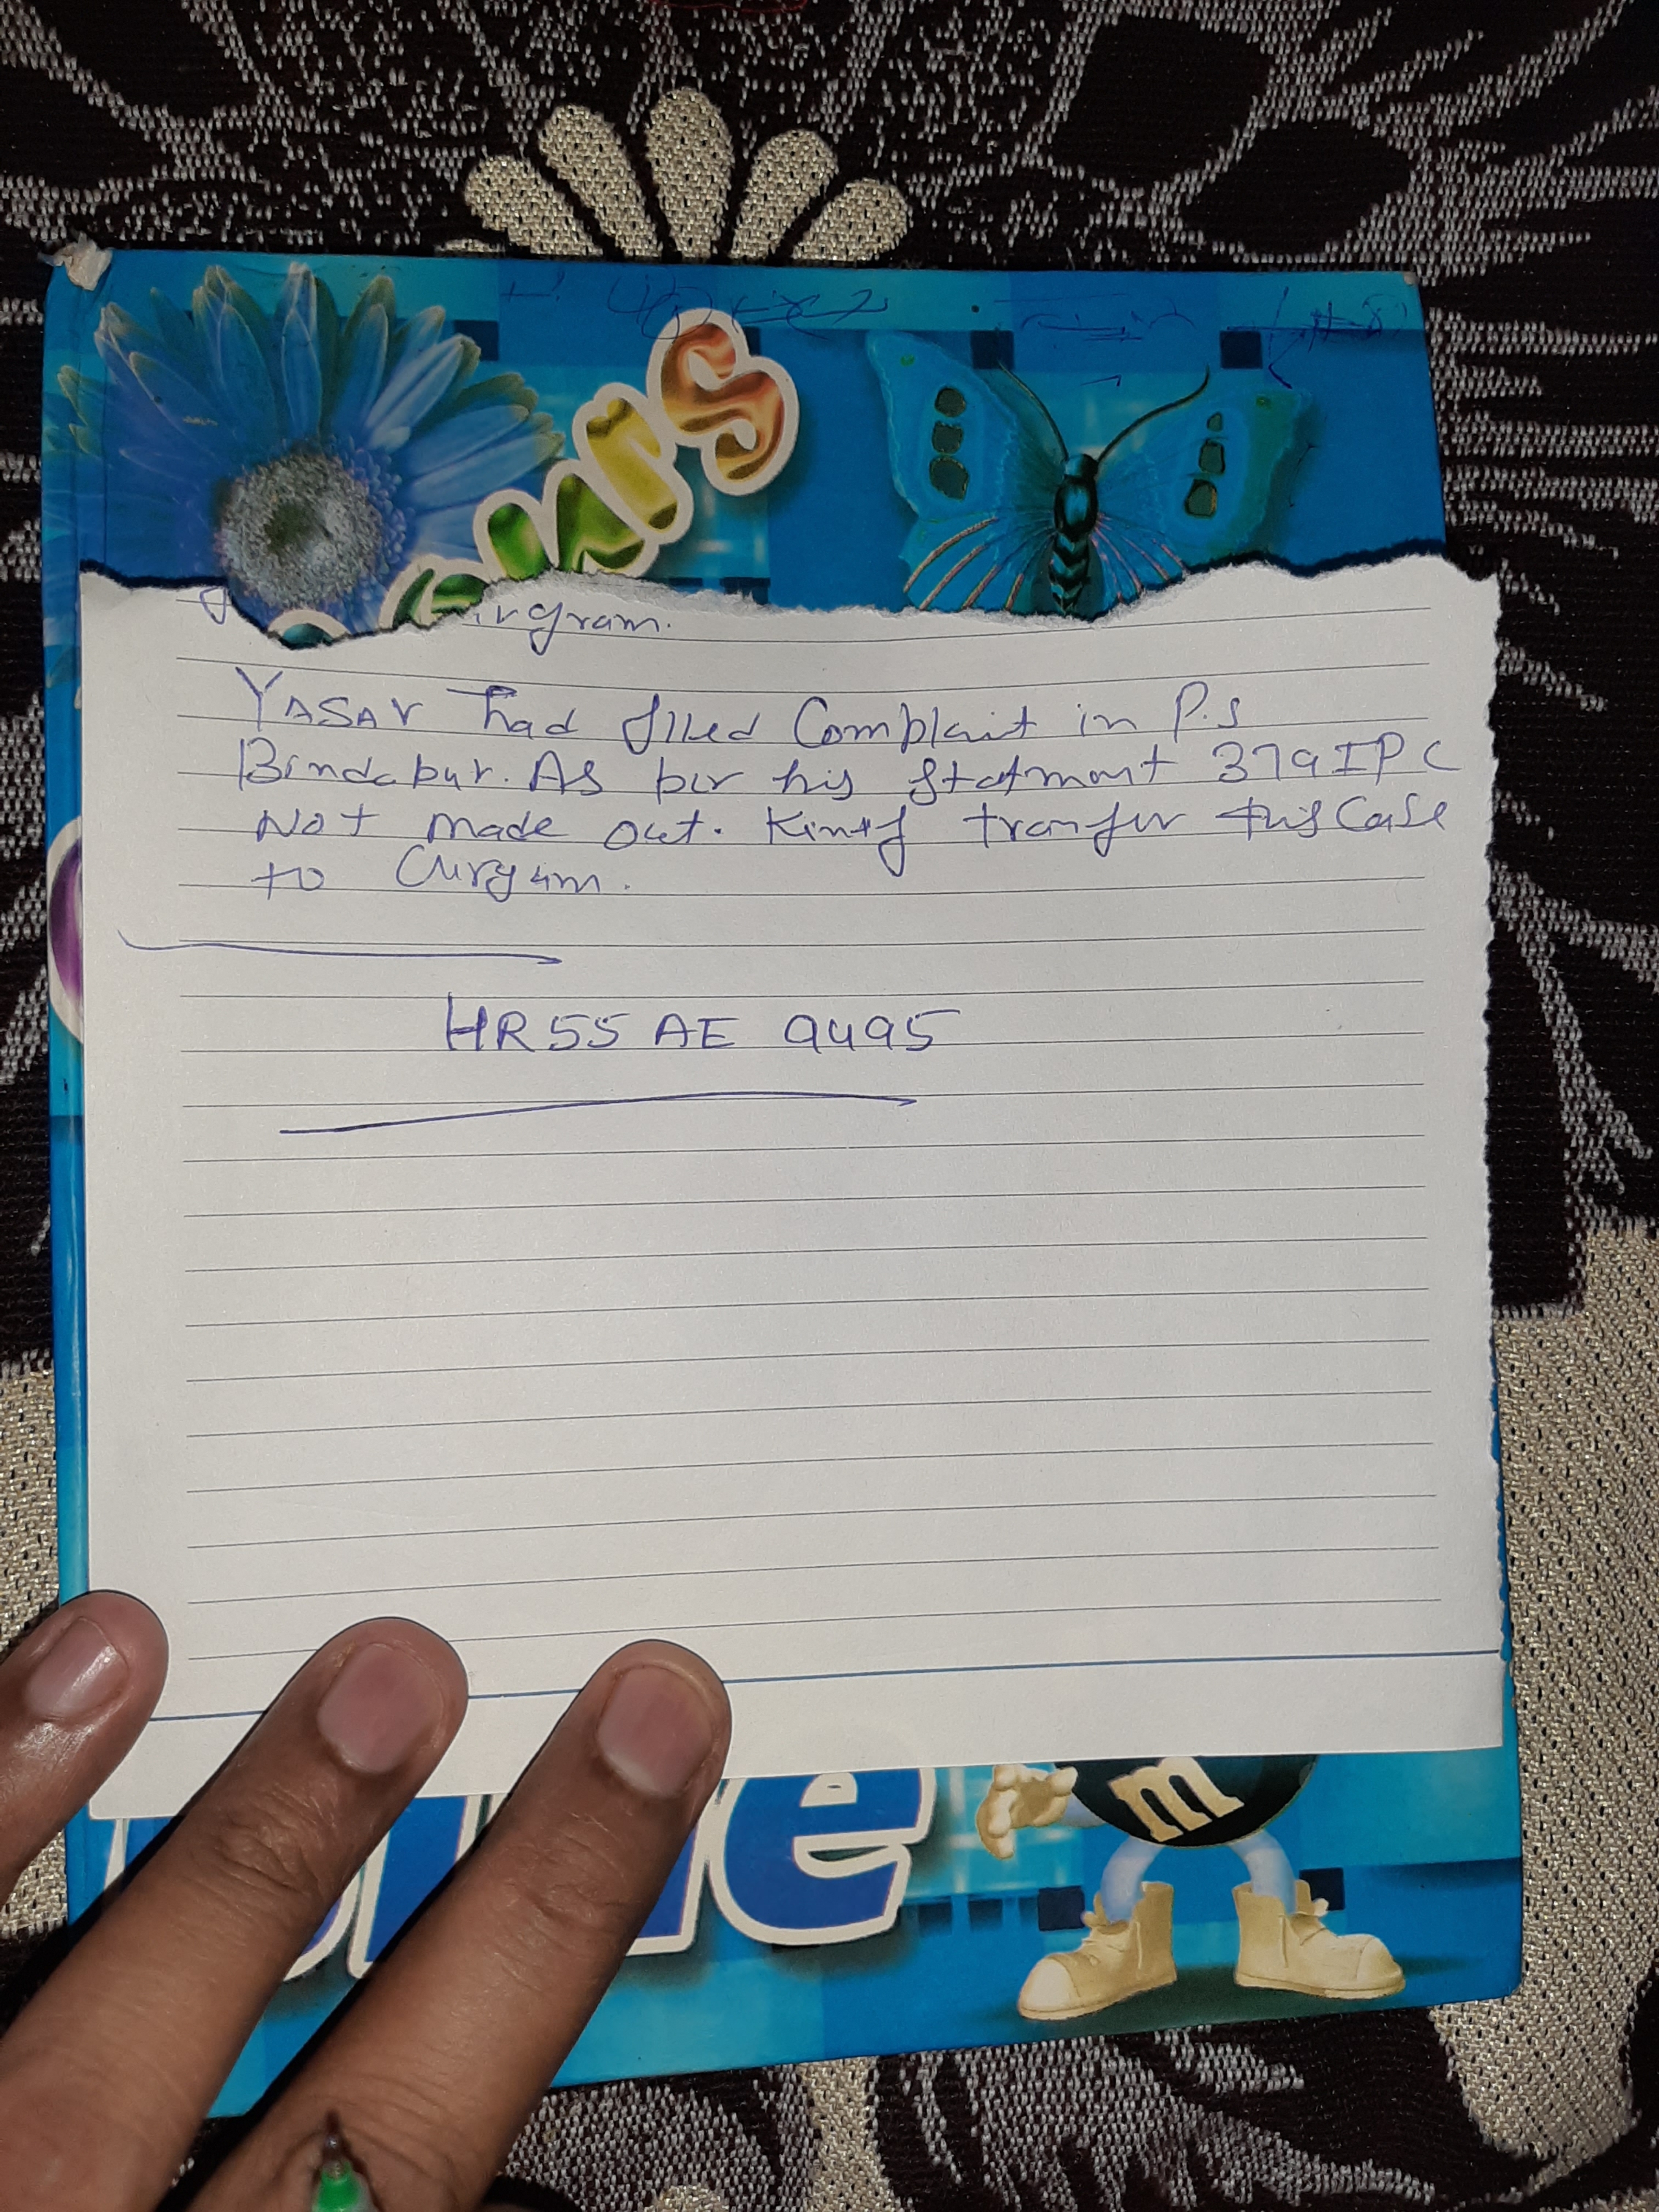 urs
rgram.
YASAV had filed Complait in P.S
Bindapur. As per his statmant 379 IPC
Not made out. Kindf tranfer this Case
to Gurgam.
HR55 AE 9495
me
m